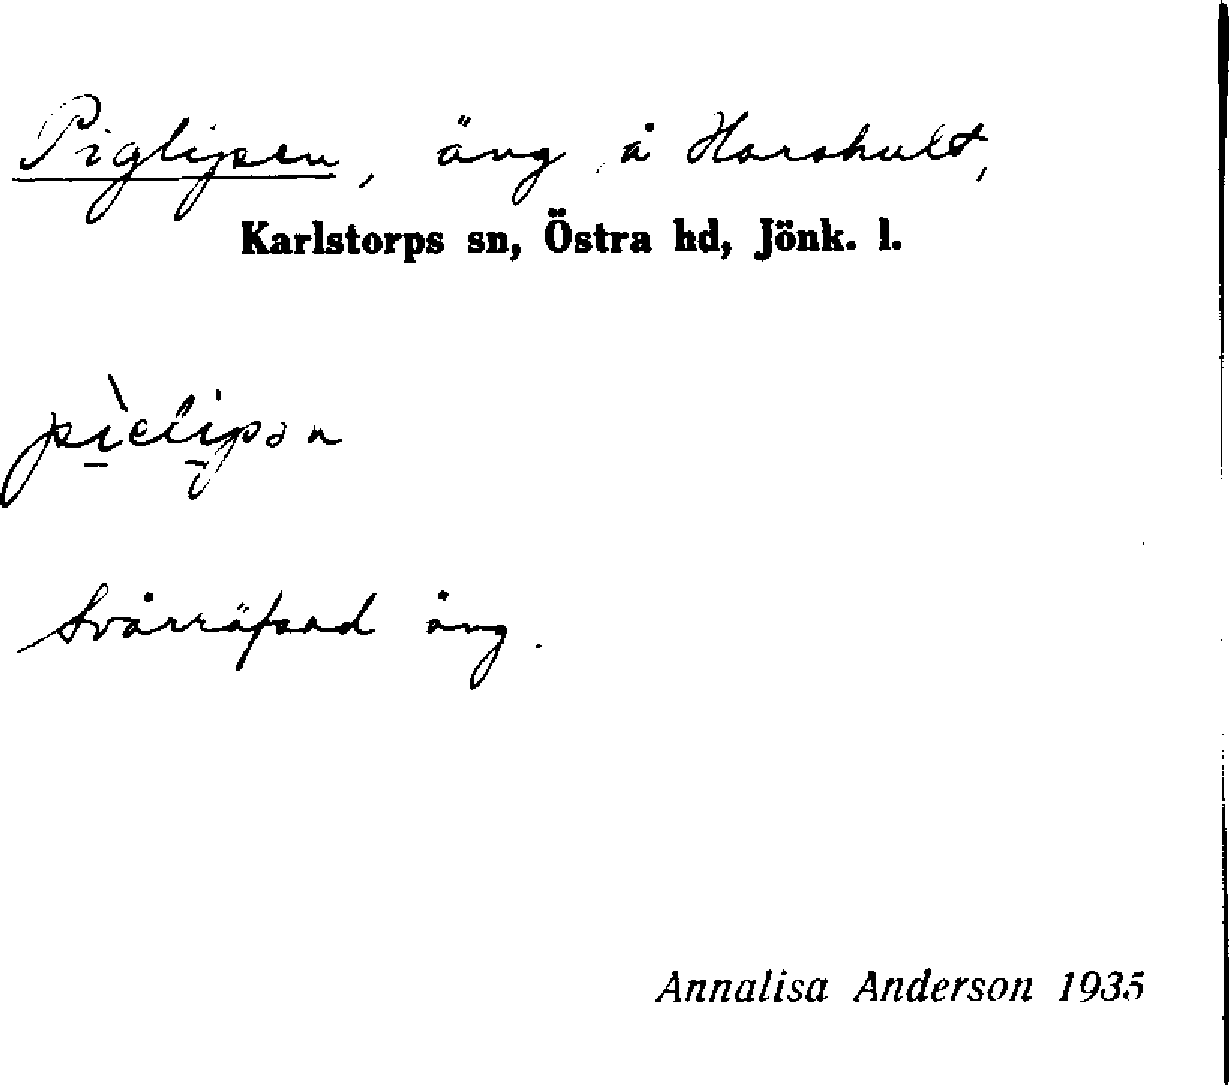 Piglipen, äng å Harshult,
Karlstorps sn, Östra hd, Jönk. l.
Svårräfsad äng.
Annalisa Anderson 1935